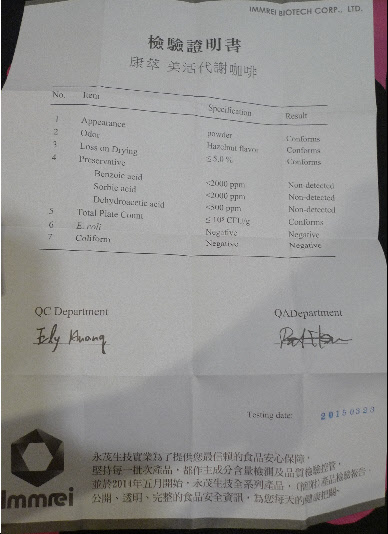 IMMREI BIOTECH CORP., LTD.
檢驗證明書
康萃 美活代謝咖啡
No. Item Specification Result
1 Appearance powder Conforms
2 Odor Hazelnut flavor Conforms
3 Loss on Drying ≤5.0 % Conforms
4 Preservative
Benzoic acid <2000 ppm Non-detected
Sorbic acid <2000 ppm Non-detected
Dehydroacetic acid <500 ppm Non-detected
5 Total Plate Count CFU/g Conforms
6 E. coli Negative Negative
7 Coliform Negative Negative
QC Department QADepartment
Testing date:
永茂生技實業為了提供您最信賴的食品安心保障,
堅持每一批次產品,都作主成分含量檢測及品質檢驗控管,
並於2014年五月開始,永茂生技全系列產品,
公開、透明、完整的食品安全資訊,為您每天的健康把關。
Immrei